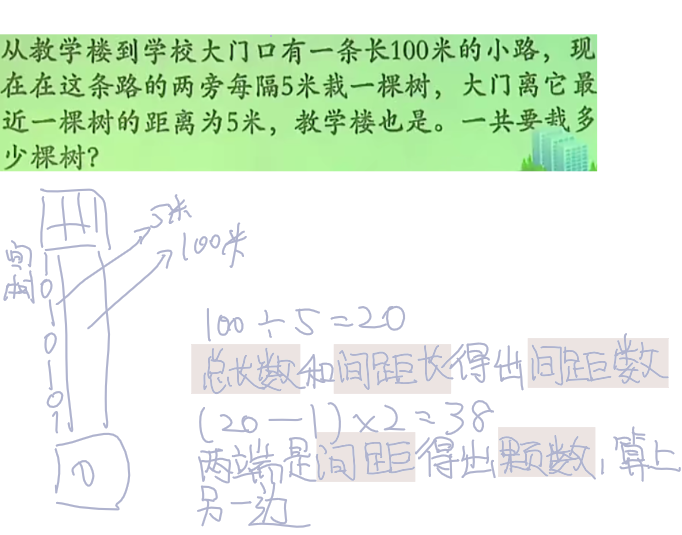 从教学楼到学校大门口有一条长100米的小路，现
在在这条路的两旁每隔5米栽一棵树，大门离它最
近一棵树的距离为5米，教学楼也是。一共要栽多
少棵树？
5米
100米
间
树
100÷5=20
总长数和间距长得出间距数
(20-1)×2=38
两端是间距得出颗数，算上
另一边